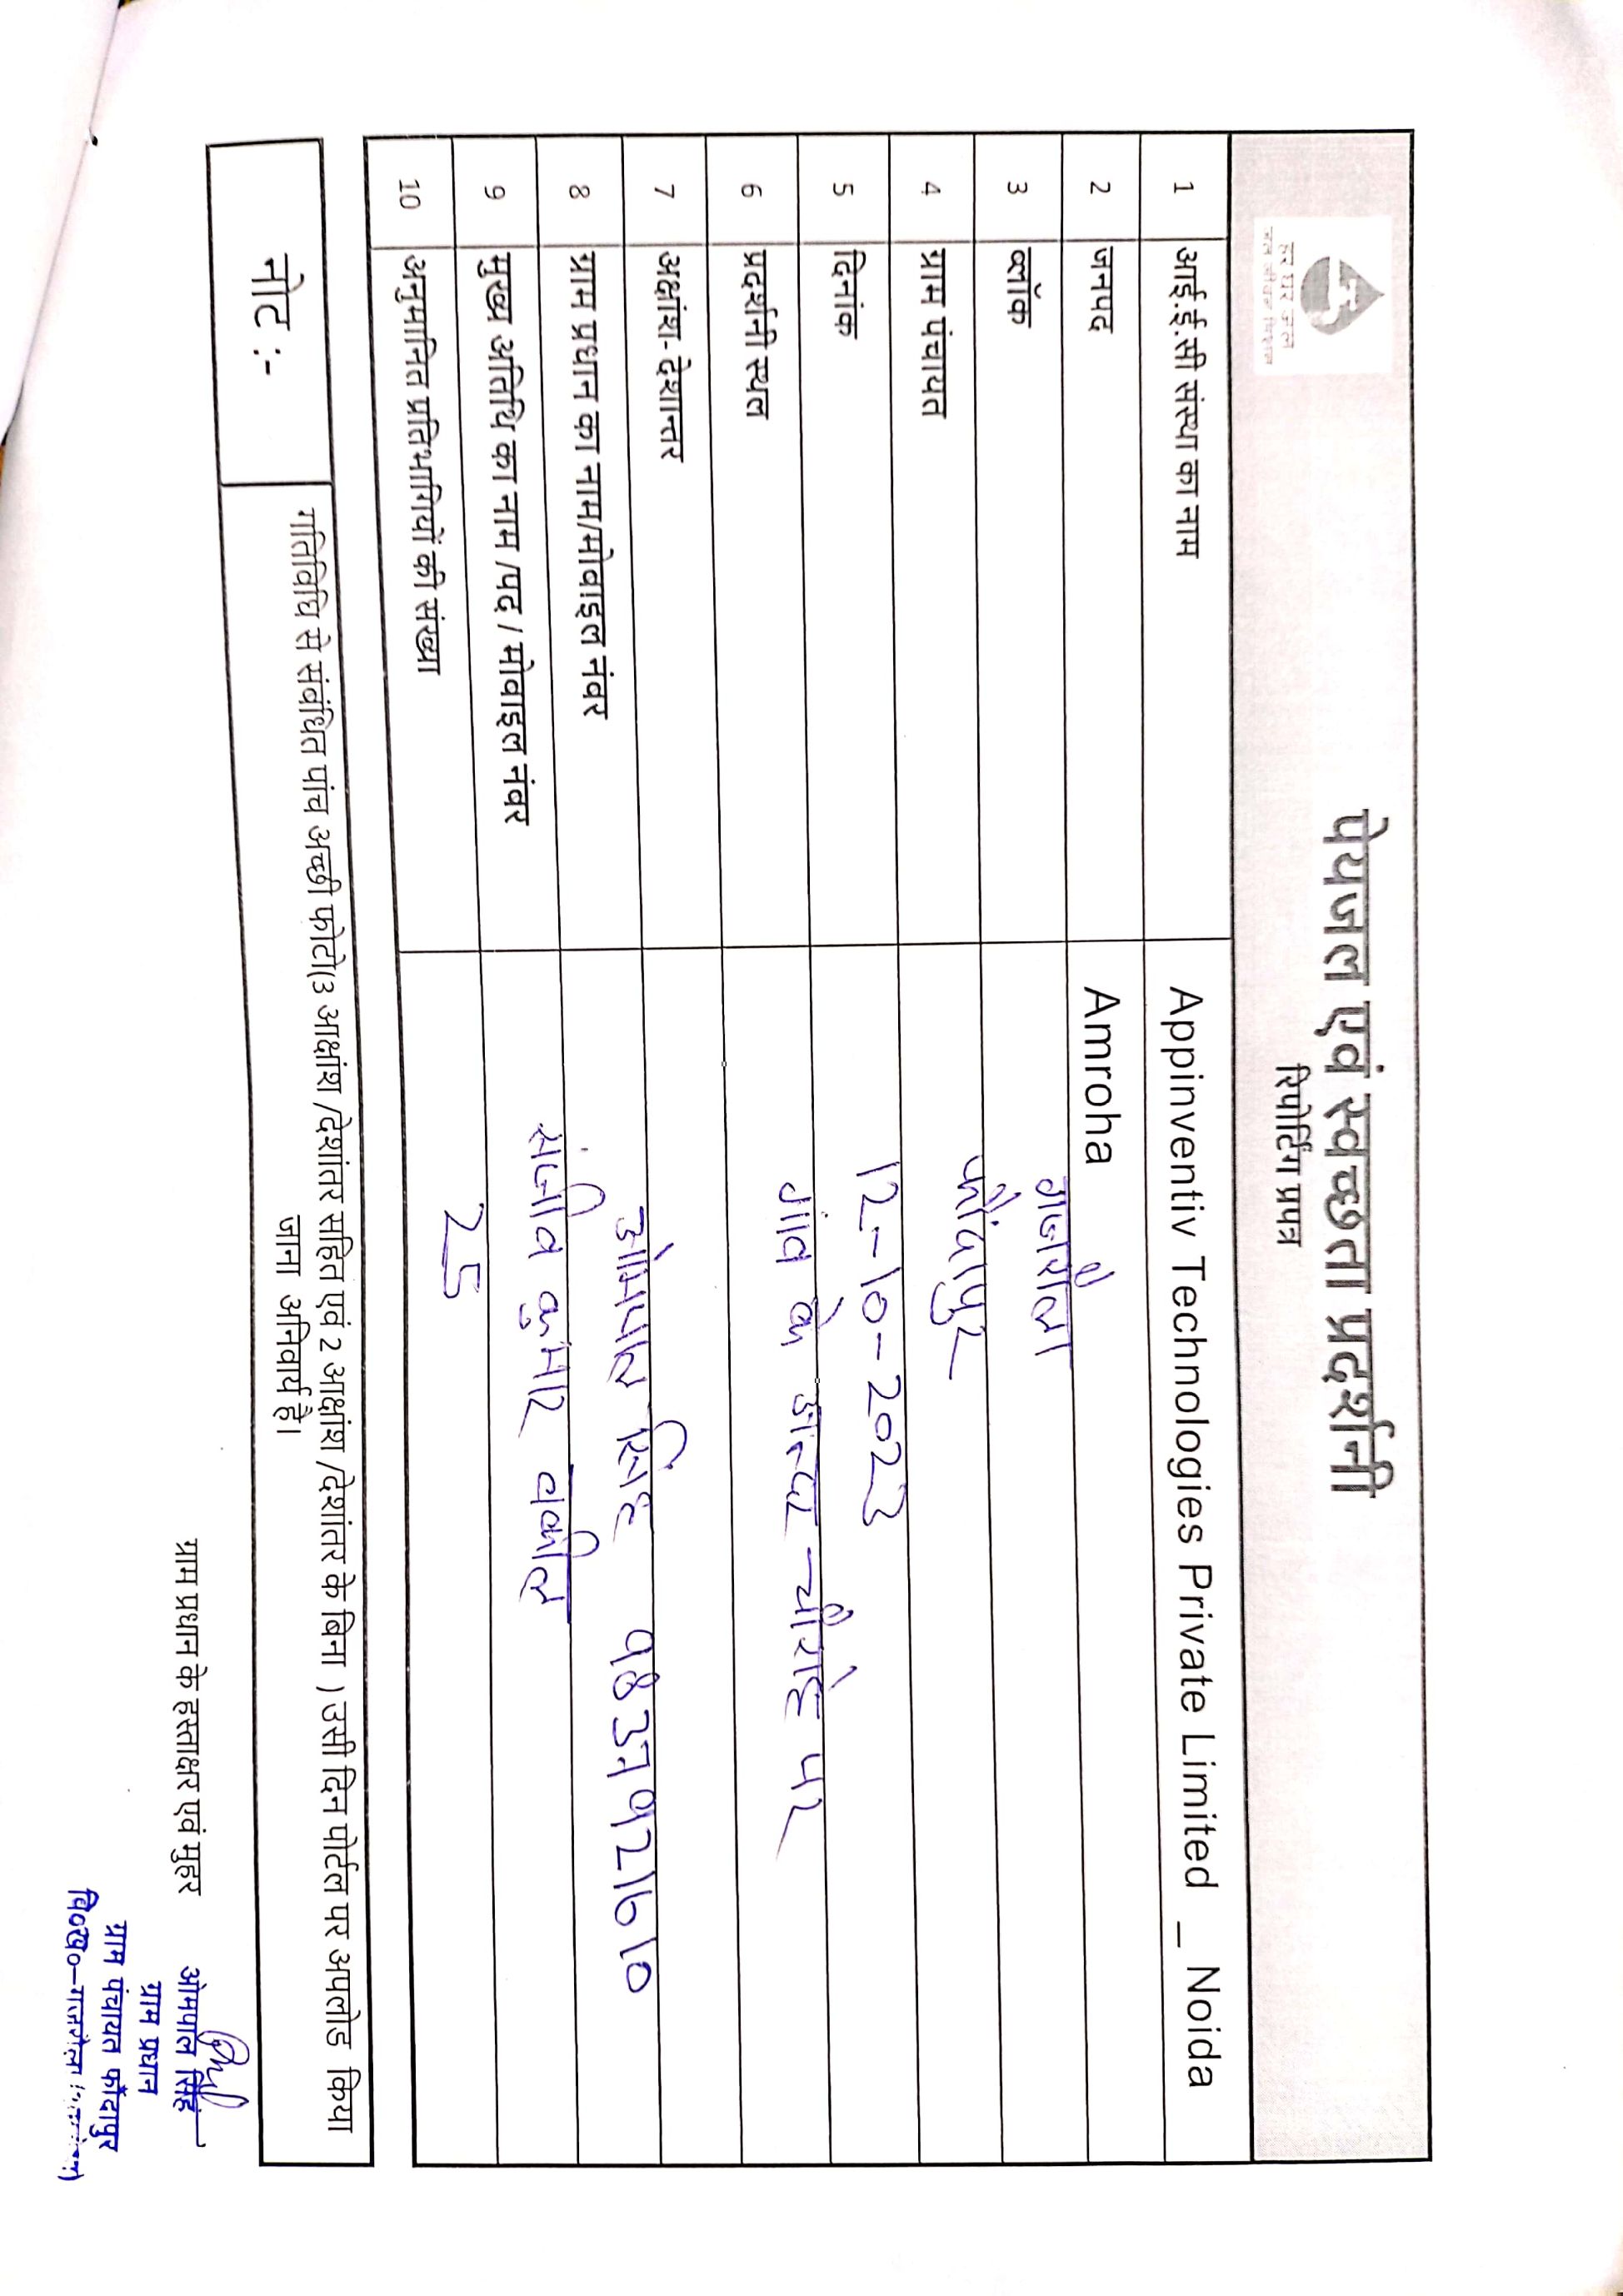 हर घर जल
जल जीवन मिशन
पेयजल एवं स्वच्छता प्रदर्शनी
रिपोर्टिंग प्रपत्र
1 आई.ई.सी संस्था का नाम Appinventiv Technologies Private Limited _ Noida
2 जनपद Amroha
3 ब्लॉक गजरौला
4 ग्राम पंचायत फौंदापुर
5 दिनांक 12-10-2023
6 प्रदर्शनी स्थल गांव के अन्दर चौराहे पर
7 अक्षांश-देशान्तर
8 ग्राम प्रधान का नाम/मोबाइल नंबर ओमपाल सिंह
9 मुख्य अतिथि का नाम /पद / मोबाइल नंबर सजीव कुमार वकील
10 अनुमानित प्रतिभागियों की संख्या 25
नोट :- गतिविधि से संबंधित पांच अच्छी फोटो(3 आक्षांश /देशांतर सहित एवं 2 आक्षांश /देशांतर के बिना ) उसी दिन पोर्टल पर अपलोड किया
जाना अनिवार्य है।
ग्राम प्रधान के हस्ताक्षर एवं मुहर
ओमपाल सिंह
ग्राम प्रधान
ग्राम पंचायत फौंदापुर
वि०ख०-गजरौला